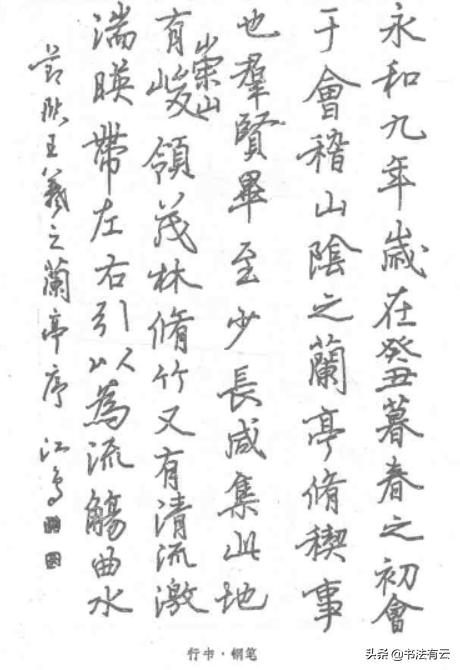 永和九年歲在癸丑暮春之初會
于會稽山陰之蘭亭脩稧事
也羣賢畢至少長咸集此地
有崇山峻領茂林脩竹又有清流激
湍暎帶左右引以為流觴曲水
節臨王羲之蘭亭序 江鳥
行书·钢笔
头条 @书法有云